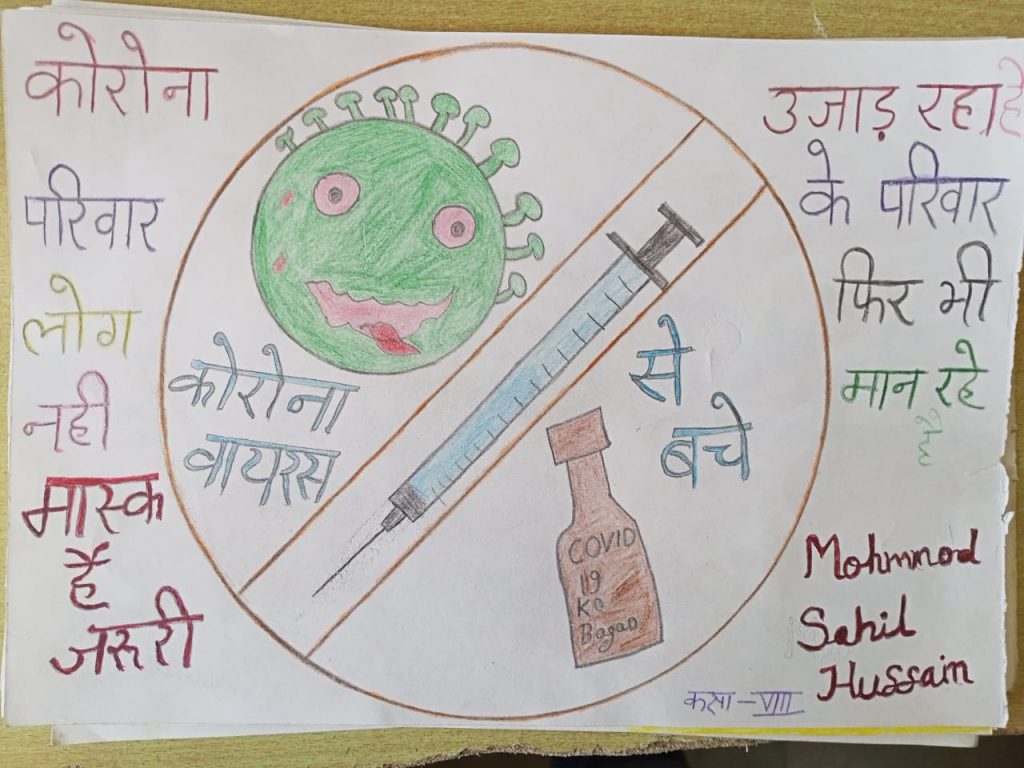 कोरोना
उजाड़ रहा हे
परिवार
के परिवार
लोग
फिर भी
नही
मान रहे
मास्क
है
जरूरी
कोरोना
वायरस
से
बचे
COVID
19
Ko
Bagao
Mohmmod
Sahil
Hussain
कक्षा - VIII